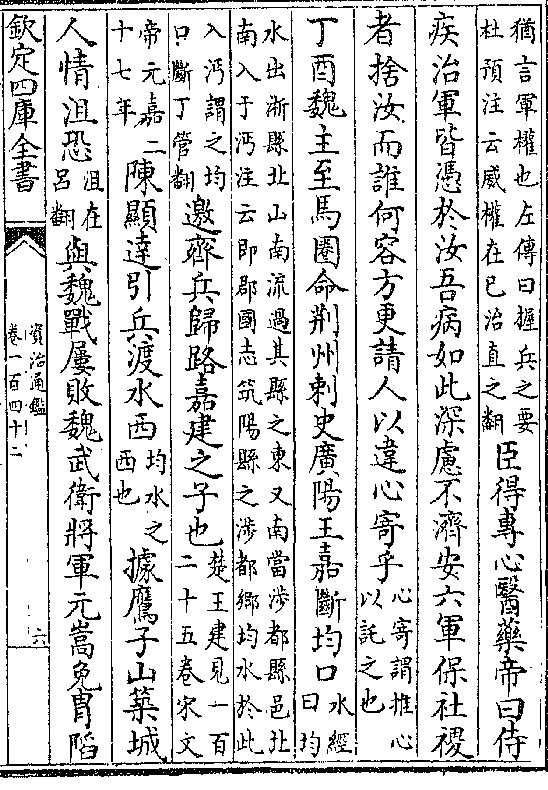 猶言軍權也左傳曰握兵之要
杜預注云威權在已治直之翻
臣得專心醫藥帝曰侍
疾治軍皆憑於汝吾病如此深慮不濟安六軍保社稷
者捨汝而誰何容方更請人以違心寄乎
心寄謂推心
以託之也
丁酉魏主至馬圈命荆州刺史廣陽王嘉斷均口
水經
曰均
水出淅縣北山南流過其縣之東又南當涉都縣邑北
南入于沔注云即郡國志筑陽縣之涉都鄉均水於此
入沔謂之均
口斷丁管翻
邀齊兵歸路嘉建之子也
楚王建見一百
二十五卷宋文
帝元嘉二
十七年
陳顯達引兵渡水西
均水之
西也
據鷹子山築城
人情沮恐
沮在
呂翻
與魏戰屢敗魏武衛將軍元嵩免胄陷
欽定四庫全書
資治通鑑
卷一百四十二
六